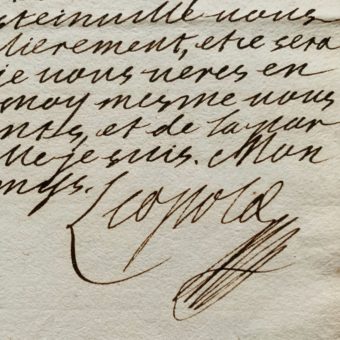 steinville vous
lierement, et ce sera
je vous veres en
moy mesme vous
nts, et de la par
lle je suis. Mon
Leopold